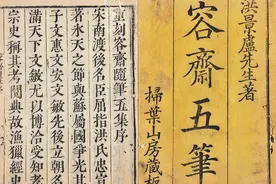 洪景盧先生著
容齋五筆
掃葉山房藏板
重刻容齋隨筆五集序
宋南渡後名臣屈指洪氏忠宣
著氷天之節與蘇屬國爭光其
子文惠文安文敏先後立朝名
滿天下文敏尤以博洽受知孝
宗史稱其考閱典故漁獵經史